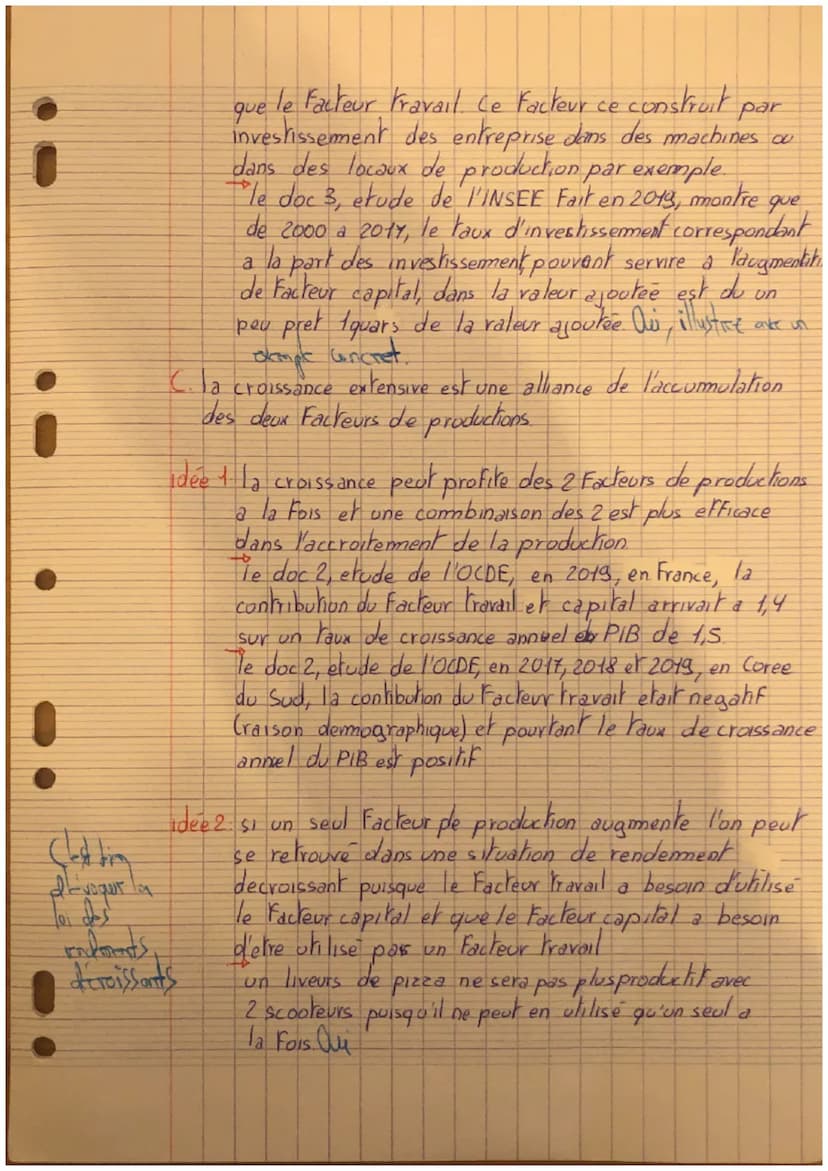 que le Facteur travail. Ce Facteur ce construit par
investissement des entreprise dans des machines ou
dans des locaux de production par exemple.
→ le doc 3, etude de l'INSEE Fait en 2019, montre que
de 2000 a 2017, le taux d'investissement correspondant
a la part des investissement, pouvant servire a l'augmentiti
de Facteur capital, dans la valeur ajouteé est du un
peu pret 1quars de la valeur ajoutée. Oui, illustre avec un
exemple concret.
C. la croissance extensive est une alliance de l'accummulation
des deux Facteurs de productions.
idée 1: la croissance peut profite des 2 Facteurs de productions
a la Fois et une combinaison des 2 est plus efficace
dans l'accroitement de la production
→ le doc 2, etude de l'OCDE, en 2019, en France, la
contribution du Facteur travail et capital arrivait a 1,4
sur un taux de croissance annuel du PIB de 1,5.
→ le doc 2, etude de l'OCDE, en 2017, 2018 et 2019, en Coree
du Sud, la contibution du Facteur travait etait negatif
(raison demographique) et pourtant le taux de croissance
annel du PIB est positif
idée 2: si un seul Facteur de production augmente l'on peut
se retrouvé dans une situation de rendement
decroissant puisque le Facteur travail a besoin d'utilisé
le Facteur capital et que le Facteur capital a besoin
d'etre utilisé pas un Facteur travail
→ un liveurs de pizza ne sera pas plus productif avec
2 scooteurs puisqu'il ne peut en utilisé qu'un seul a
la Fois. Oui
C'est bien
d'évoquer la
loi des
rendements
décroissants